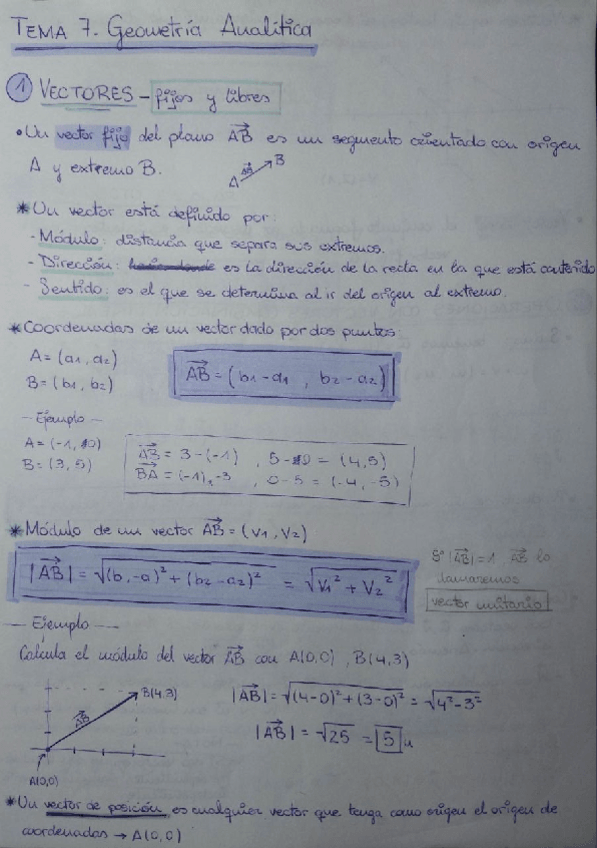 TEMA 7. Geometría Analítica
1 VECTORES - fijos y libres
• Un vector fijo del plano AB→ es un segmento orientado con origen
A y extremo B.
A AB→ B
* Un vector está definido por:
- Módulo: distancia que separa sus extremos.
- Dirección: es la dirección de la recta en la que está contenido
- Sentido: es el que se determina al ir del origen al extremo.
* Coordenadas de un vector dado por dos puntos:
A = (a₁, a₂)
B = (b₁, b₂)
AB→ = (b₁-a₁ , b₂-a₂)
- Ejemplo -
A = (-1, 0)
B = (3, 5)
AB→ = 3-(-1) , 5-0 = (4,5)
BA→ = (-1)-3 , 0-5 = (-4,-5)
* Módulo de un vector AB→ = (v₁, v₂)
|AB→| = √(b₁-a)² + (b₂-a₂)² = √v₁² + v₂²
Si |AB→| = 1 AB→ lo
llamaremos
vector unitario
- Ejemplo -
Calcula el módulo del vector AB→ con A(0,0) , B(4,3)
B(4,3)
AB→
A(0,0)
|AB→| = √(4-0)² + (3-0)² = √4²-3²
|AB→| = √25 = 5 u
* Un vector de posición es cualquier vector que tenga como origen el origen de
coordenadas → A(0,0)